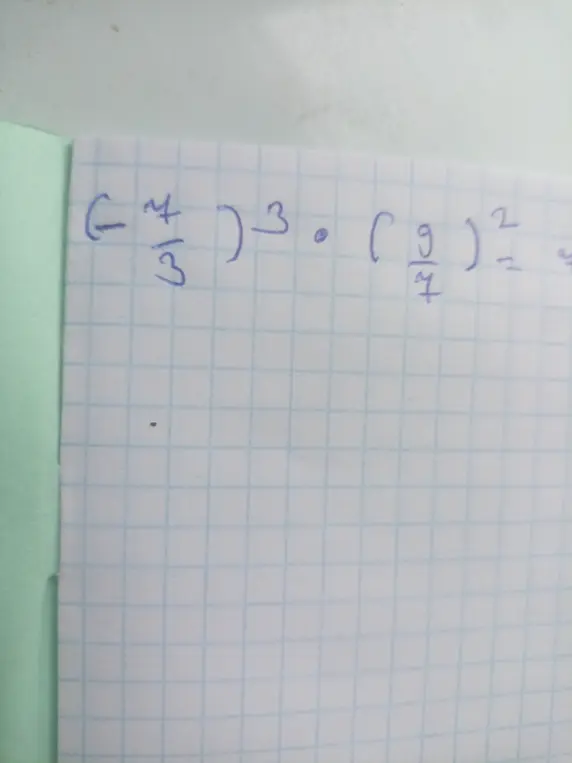 (- 7/3)^3 · (9/7)^2 =